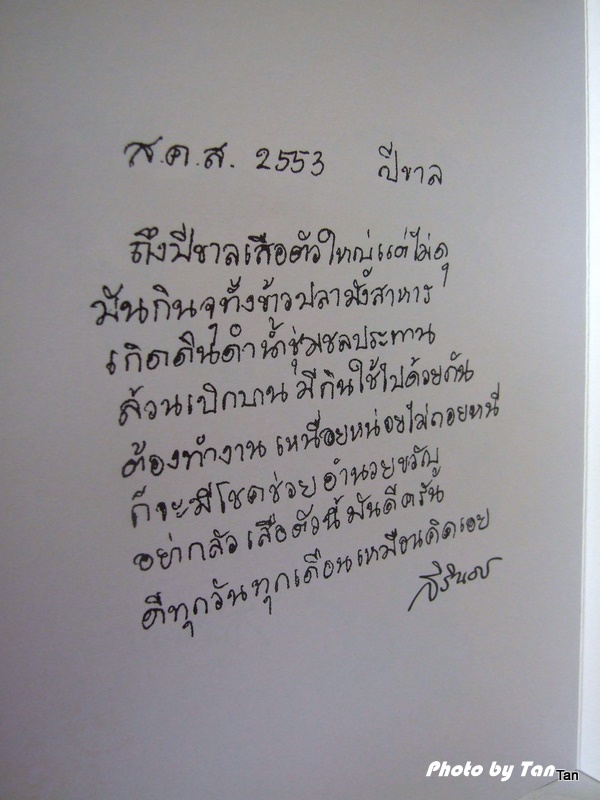 ส.ค.ส. 2553 ปีขาล
ถึงปีขาลเสือตัวใหญ่แต่ไม่ดุ
มันกินจุทั้งข้าวปลามังสาหาร
เกิดดินดำน้ำชุ่มชลประทาน
ล้วนเบิกบาน มีกินใช้ไปด้วยกัน
ต้องทำงาน เหนื่อยหน่อยไม่ถอยหนี
ก็จะมีโชคช่วย อำนวยขวัญ
อย่ากลัว เสือตัวนี้ มันดีครัน
ดีทุกวันทุกเดือนเหมือนคิดเอย
สิรินธร
Photo by Tan
Tan